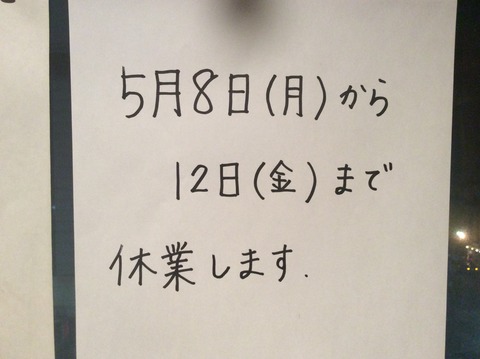 5月8日(月)から
12日(金)まで
休業します.